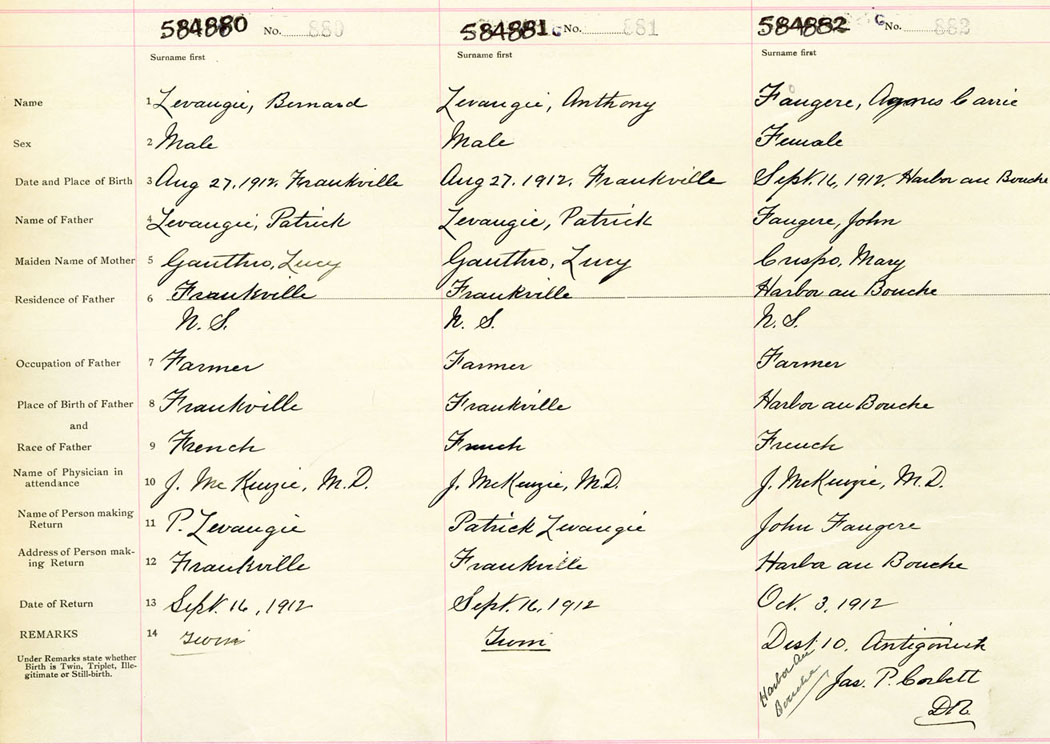 584880 No. 880 584881 No. 881 584882 No. 882
Surname first Surname first Surname first
Name 1 Levangie, Bernard Levangie, Anthony Faugere, Agnes Carrie
Sex 2 Male Male Female
Date and Place of Birth 3 Aug 27, 1912. Frankville Aug 27. 1912. Frankville Sept. 16, 1912. Harbor au Bouche
Name of Father 4 Levangie, Patrick Levangie, Patrick Faugere, John
Maiden Name of Mother 5 Gauthro, Lucy Gauthro, Lucy Crispo, Mary
Residence of Father 6 Frankville Frankville Harbor au Bouche
N. S. N. S. N. S.
Occupation of Father 7 Farmer Farmer Farmer
Place of Birth of Father 8 Frankville Frankville Harbor au Bouche
and
Race of Father 9 French French French
Name of Physician in
attendance 10 J. McKenzie, M.D. J. McKenzie, M.D. J. McKenzie, M.D.
Name of Person making
Return 11 P. Levangie Patrick Levangie John Faugere
Address of Person mak-
ing Return 12 Frankville Frankville Harbor au Bouche
Date of Return 13 Sept. 16, 1912 Sept. 16, 1912 Oct. 3, 1912
REMARKS 14 Twin Twin Dist. 10. Antigonish
Under Remarks state whether
Birth is Twin, Triplet, Ille-
gitimate or Still-birth.
Harbor au
Bouche
Jas. P. Corbett
D.R.